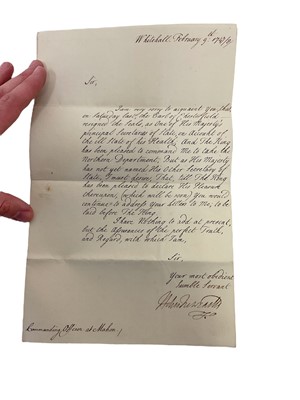 Whitehall, February 9th 1747/8.
Sir,
I am very sorry to acquaint you, that
on Saturday last, the Earl of Chesterfield,
resigned the Seals, as One of His Majesty's
principal Secretarys of State, on Account of
the ill State of his Health; And The King
has been pleased to command Me to take the
Northern Department; But as His Majesty
has not yet named His Other Secretary of
State, I must desire, That, till The King
has been pleased to declare His Pleasure
thereupon, (which will be soon) You would
continue to address Your Letters to Me, to be
laid before The King.
I have Nothing to add at present,
but the Assurances of the perfect Truth,
and Regard, with which I am,
Sir,
Your most obedient
humble Servant
Holles Newcastle
Commanding Officer at Mahon.